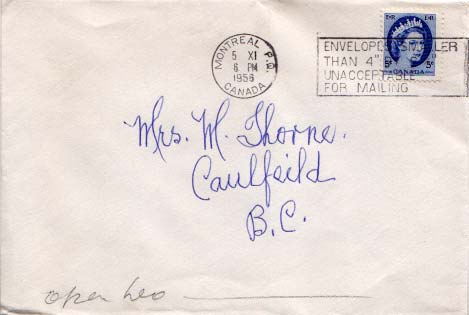 MONTREAL P.Q.
5 XI
6 PM
1956
CANADA
EIIR EIIR
ENVELOPES SMALLER
THAN 4"
UNACCEPTABLE
FOR MAILING
5¢ 5¢
CANADA
Mrs. M. Thorne.
Caulfeild
B.C.
open